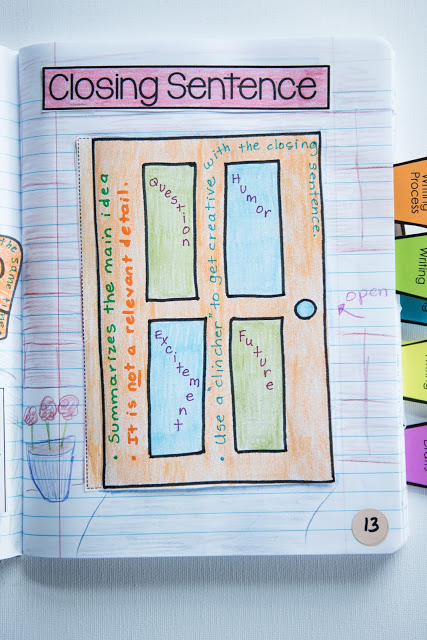 Closing Sentence
• Summarizes the main idea
• It is not a relevant detail.
Question
Humor
Excitement
Future
• Use a "clincher" to get creative with the closing sentence.
open
13
Writing Process
Writing
the same time